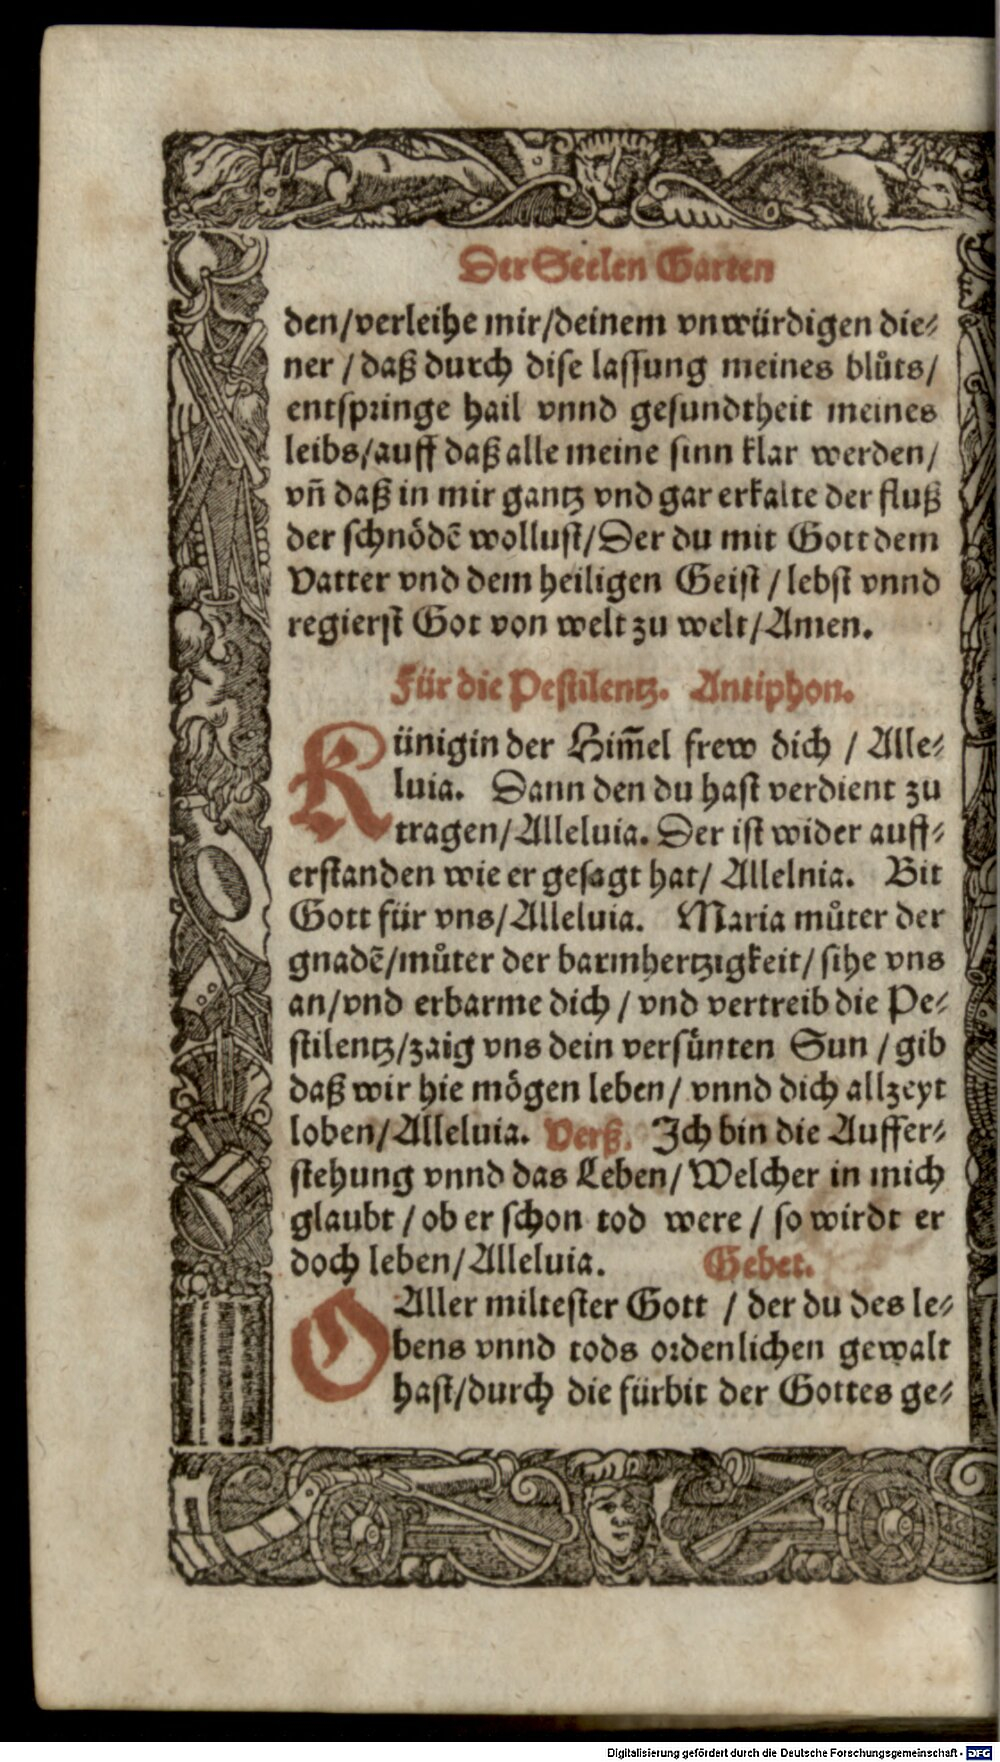 Der Seelen Garten
den/verleihe mir/deinem vnwürdigen die⸗
ner / daß durch dise lassung meines blůts/
entspringe hail vnnd gesundtheit meines
leibs/auff daß alle meine sinn klar werden/
vñ daß in mir gantz vnd gar erkalte der fluß
der schnödē wollust/Der du mit Gott dem
Vatter vnd dem heiligen Geist / lebst vnnd
regierst Got von welt zu welt/Amen.
Für die Pestilentz. Antiphon.
Künigin der Him̄el frew dich / Alle⸗
luia. Dann den du hast verdient zu
tragen/Alleluia. Der ist wider auff⸗
erstanden wie er gesagt hat/ Allelnia. Bit
Gott für vns/Alleluia. Maria můter der
gnadē/můter der barmhertzigkeit/ sihe vns
an/vnd erbarme dich / vnd vertreib die Pe⸗
stilentz/zaig vns dein versünten Sun / gib
daß wir hie mögen leben/ vnnd dich allzeyt
loben/Alleluia. Verß. Ich bin die Auffer⸗
stehung vnnd das Leben/ Welcher in mich
glaubt / ob er schon tod were / so wirdt er
doch leben/Alleluia. Gebet.
O Aller miltester Gott / der du des le⸗
bens vnnd tods ordenlichen gewalt
hast/durch die fürbit der Gottes ge⸗
Digitalisierung gefördert durch die Deutsche Forschungsgemeinschaft - DFG